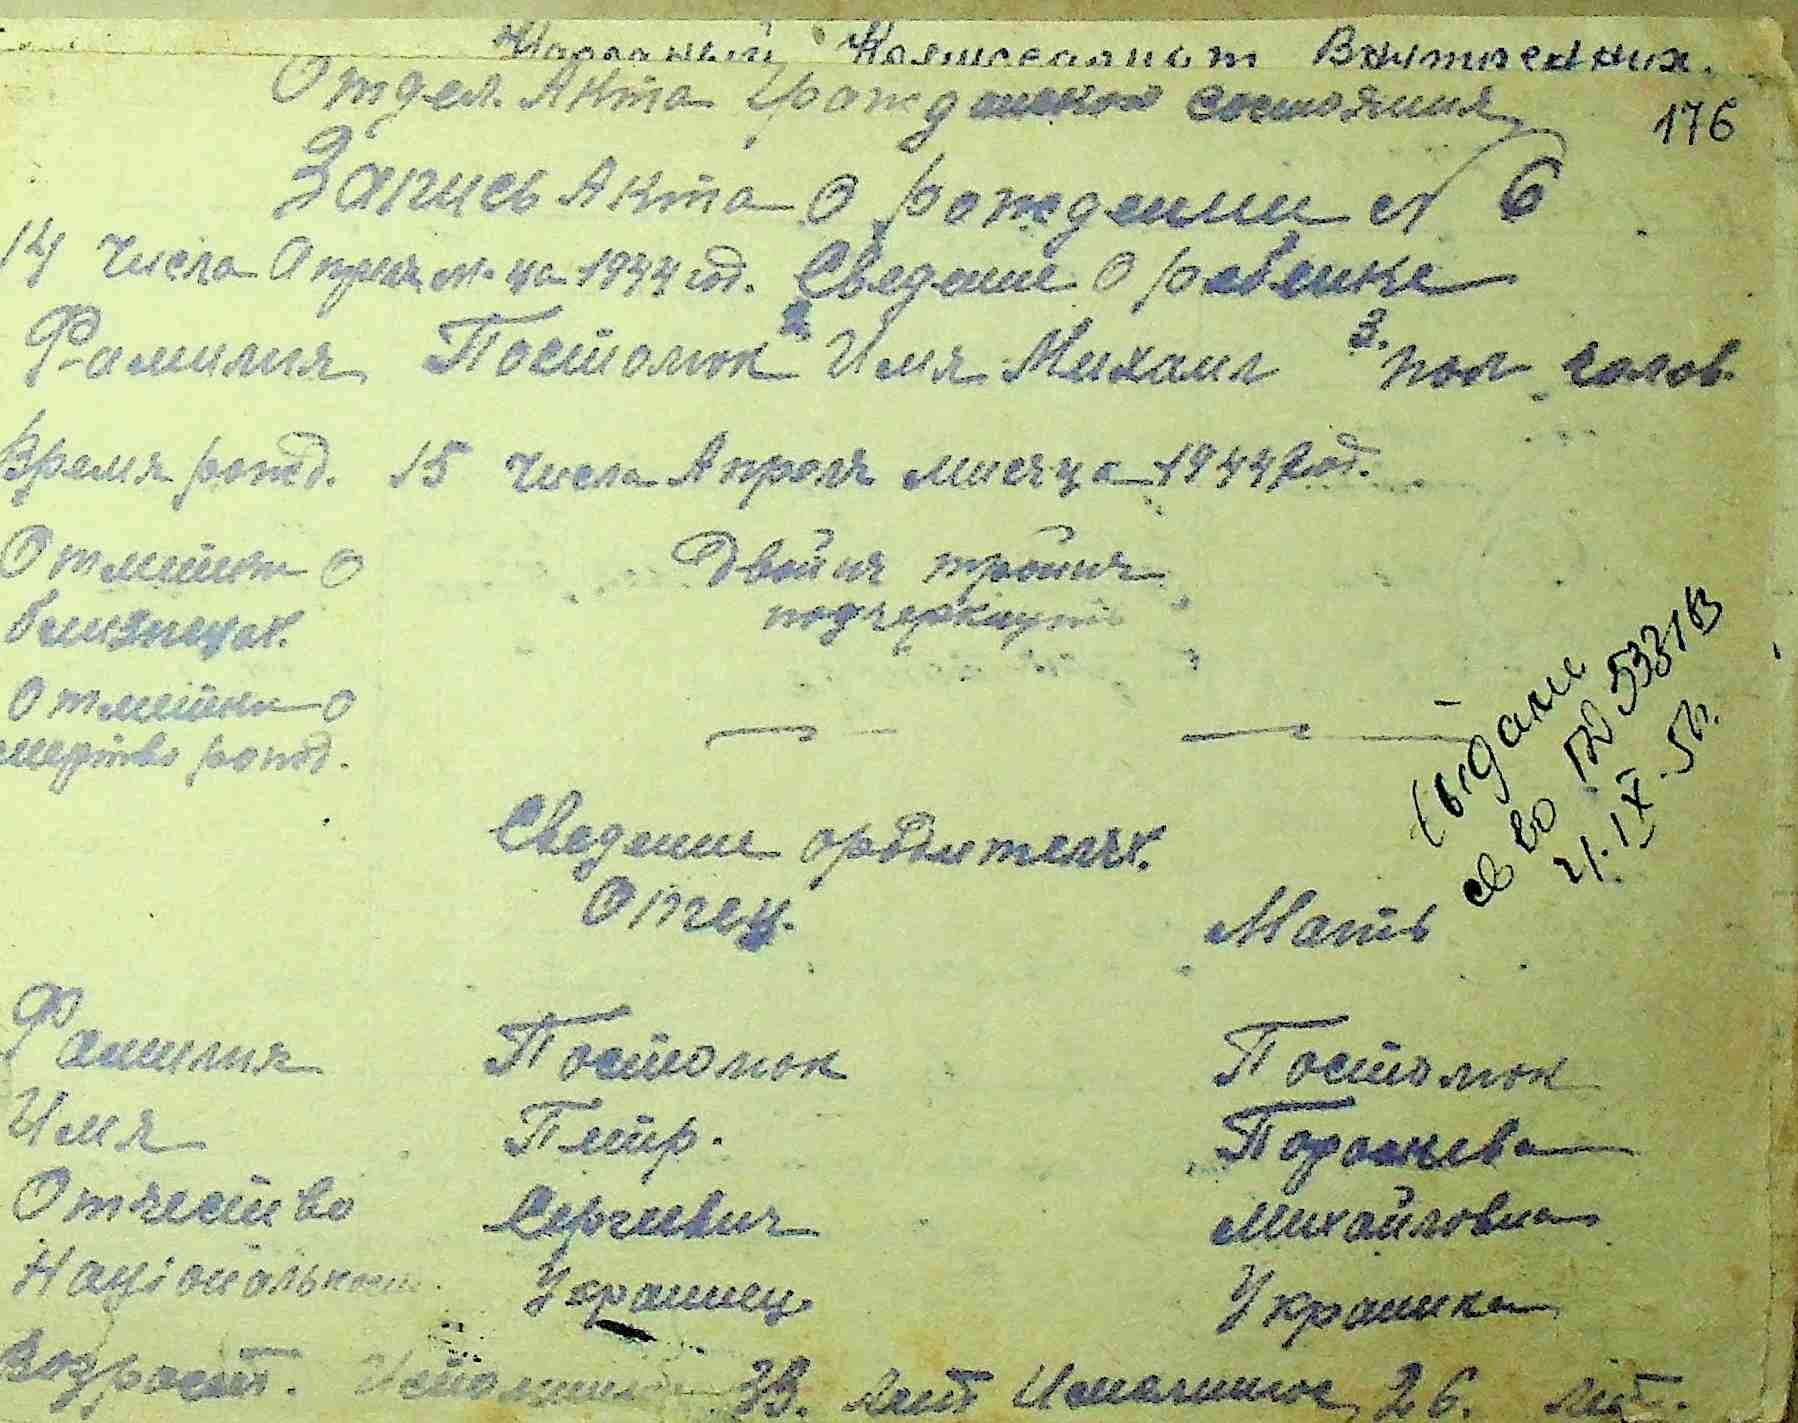 Народный Комиссариат Внутренних.
Отдел Акта Гражданского состояния
176
Запись Акта О рождении № 6
14 числа Апреля м-ца 1944 год. Сведение О ребенке
Фамилия Постолюк 2 Имя Михаил 3. пол чолов.
Время рожд. 15 числа Апреля мисяца 1944 год.
Отметка О Двойня тройня
близнецах. подчеркнут
Отметка О
мертво рожд.
Выдано
св во 533163
21.IX.5
Сведение о родителях.
Отец. Мать
Фамилия Постолюк Постолюк
Имя Петр.
Отчество Сергеевич Михайловна
Національность Украинец Украинка
Возраст. Исполнилось 33. лет Исполнилос 26. лет.